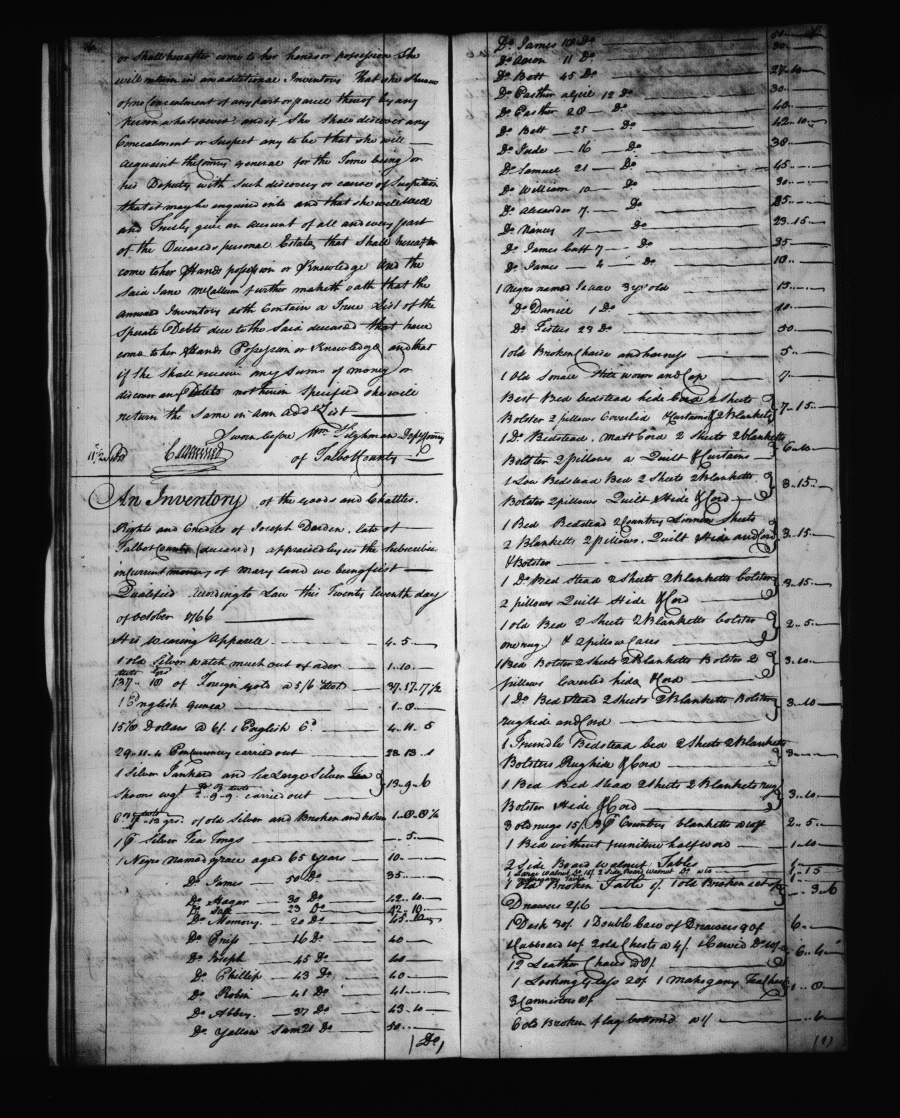 or shall hereafter come to her hands or possession She
will return in an additional Inventory That she Knows
of no Concealment of any part or parcel thereof by any
person whatsoever and if She shall discover any
Concealment or Suspect any to be that she will
acquaint the Comry general for the Time being or
his Deputy with such discovery or cause of Suspition
that it may be enquired into and that she will well
and Truely give an account of all and every part
of the Deceaseds personal Estate that Shall hereafter
come to her Hands possession or Knowledge And the
Said Jane McCallum further maketh oath that the
annexed Inventory doth Contain a True List of the
Sperate Debts due to the Said deceased that have
come to her Hands Possession or Knowledge and that
if she shall receive any Sums of money or
discover any Debts not herein Specified she will
return the Same in ann add list
Sworn before Wm Tilghman Dep Comry
of Talbot County
Examined
An Inventory of the goods and Chattles
Rights and Credits of Joseph Darden late of
Talbot County (deceased) appraised by us the Subscribers
in current money of Maryland we being first
Qualified according to Law this Twenty Seventh day
of October 1766
His wearing Apparell 4.. 5 ..
1 old Silver watch much out of order 1.. 10..
137.. 18 of Foreign gold a 5/6 37.. 17.. 7 1/2
1 English guinea
15 1/8 Dollars a 6/. 1 English 6d 4.. 11.. 5
29.. 11.. 4 Pr currency carried out 23.. 13.. 1
1 Silver Tankard and Six Large Silver Tea
Spoons wgt carried out 13.. 9.. 6
of old Silver and Broken and
1 pr Silver Tea Tongs .. 5 ..
1 Negro named grace aged 65 years 10..
Do James 50 Do 35..
Do Hagar 30 Do 42.. 10..
Do Sall 23 Do 42.. 10..
Do Memory 20 Do 45.. 10..
Do Priss 16 Do 40
Do Joseph 45 Do 40
Do Phillip 43 Do 40
Do Robin 41 Do 41..
Do Abbey. 37 Do 43.. 10
Do Yallow Sam 21 Do 50..
(Do)
Do James 18 Do 50
Do Aaron 11 Do 30
Do Bett 45 Do 27.. 10
Do Easther alpie 12 Do 30
Do Easther 20 Do 40
Do Bett 25 Do 42.. 10
Do Jude 16 Do 38
Do Samuel 21 Do 45
Do William 10 Do 30
Do Alexander 7 Do 25
Do Nancy 7 Do 23.. 15
Do James Catt 7 Do 25
Do James 4 Do 10
1 Negro named Isaac 3 yrs old 15
Do Daniel 1 Do 10..
Do Fester 23 Do 50..
1 old Broken Chaise and harness 5 ..
1 Old Small Still worm and Cap 7 ..
Best Bed bedstead hide Cord 2 Sheets
Bolster 2 pillows Coverlid Curtains & 2 Blanketts 7.. 15
1 Do Bedstead. Matt Cord 2 Sheets 2 blanketts
Bolster 2 pillows a Quilt & Curtains 6.. 10
1 Low Bedstead Bed 2 Sheets 2 Blanketts
Bolster 2 pillows Quilt Hide & Cord 3.. 15
1 Bed Bedstead 2 Country Linnen Sheets
2 Blanketts 2 pillows. Quilt Hide and Cord 3.. 15
& Bolster
1 Do Bed Stead 2 Sheets 2 Blanketts bolster
2 pillows Quilt Hide & Cord 3.. 15
1 old Bed 2 Sheets 2 Blanketts bolster
one rug & 2 pillow Cases 2.. 5
1 Bed Bolster 2 Sheets 2 Blanketts Bolster 2
pillows Coverlid hide & Cord 3.. 10
1 Do Bed Stead 2 sheets 2 Blanketts Bolster
rug hide and Cord 3.. 10
1 Trundle Bedstead bed 2 Sheets 2 Blanketts
Bolsters Rug hide & Cord 3
1 Bed Bed Stead 2 Sheets 2 Blanketts rug
Bolster Hide & Cord 3.. 10
3 old rugs 15/ 3 Country blanketts a 10/ 2.. 5
1 Bed without furniture half word 1.. 10
2 Side Board walnut Tables
1 Large walnut Do 15/. 2 Side Board Walnut Do
1 Mahogany Table
1 Old Broken Table 1/. 1 old Broken set of
Drawers 2/6 .. 3.. 6
1 Desk 30/. 1 Double Case of Drawers 90/ 6..
1 Cubboard 10/ 2 old Chests a 4/. 1 Carved Do 6.. 4
12 Leather Chairs
1 Looking glass 20/ 1 Mahogany Tea Chest
3 Cannisters 8/ 1.. 8
6 old Broken flag bottomd a 1/ .. 6
(1)